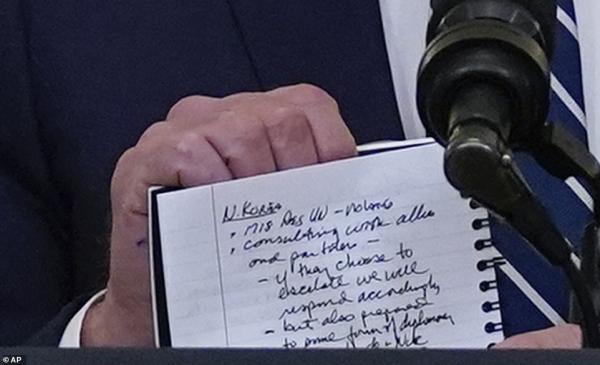 N. KOREA
• 1718 Res UN - violated
• Consulting w our allies
and partners -
- if they choose to
escalate we will
respond accordingly
- but also prepared
to some form of diplomacy
© AP